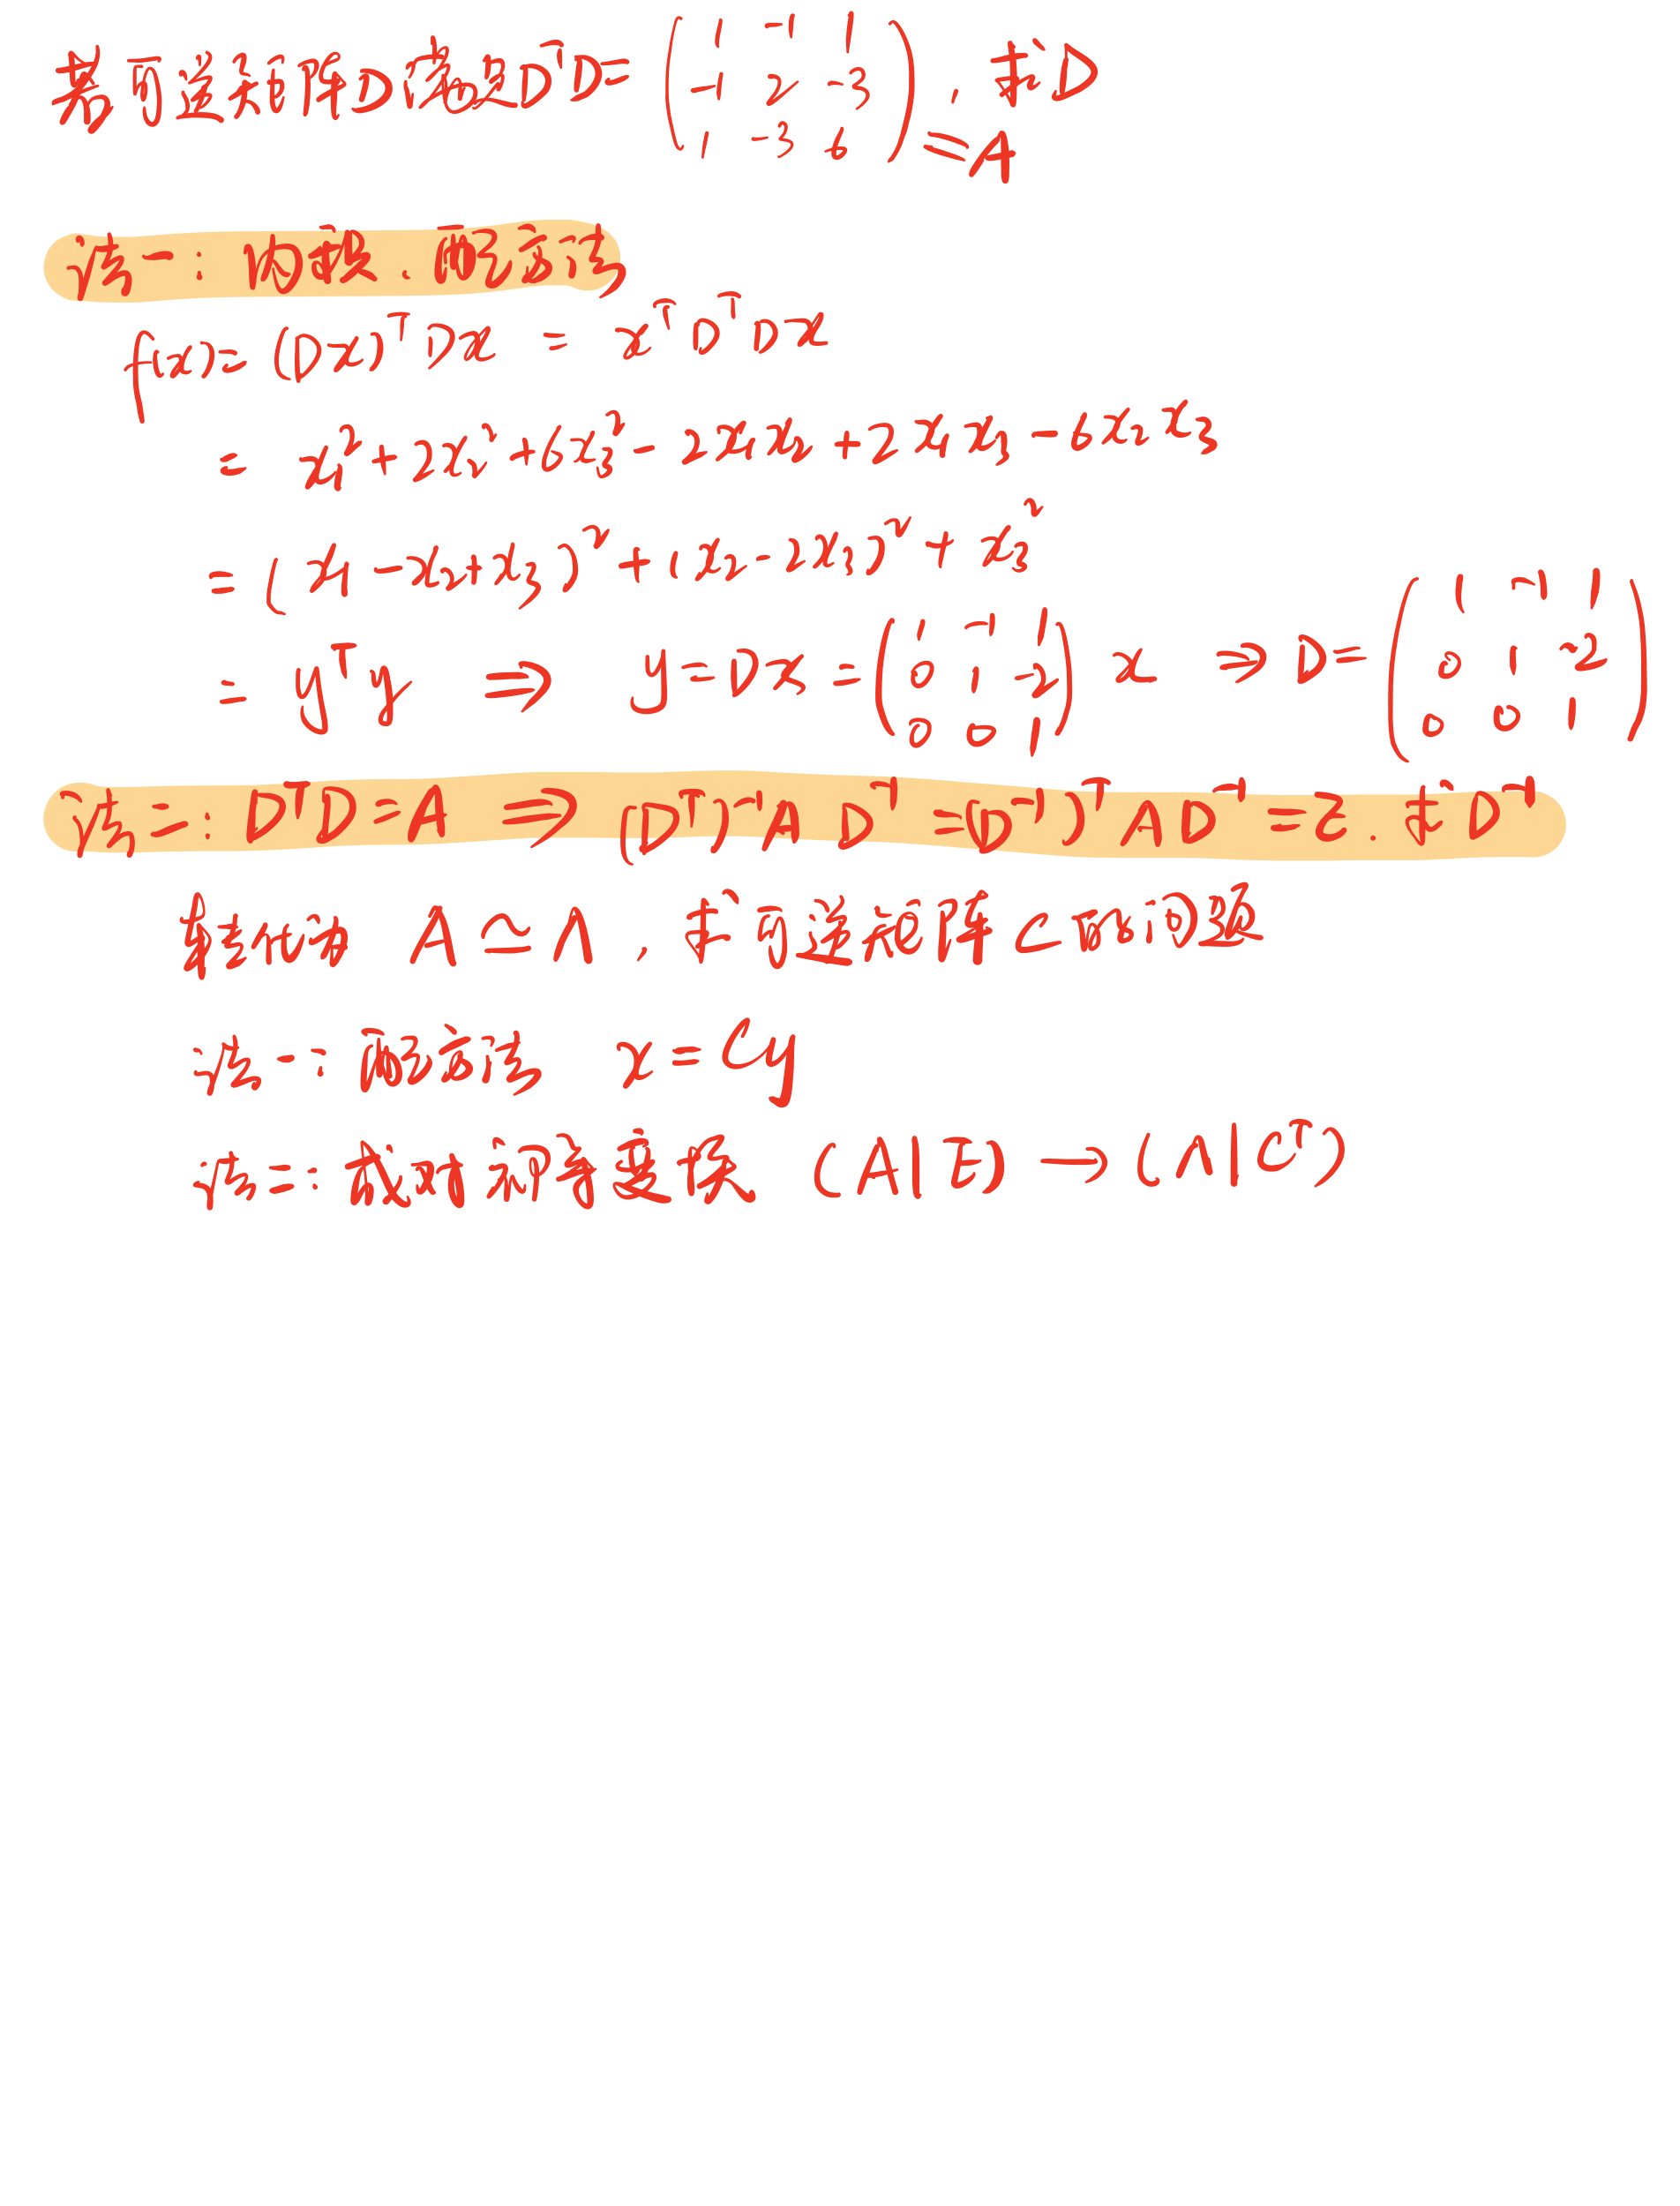 若可逆矩阵D满足DᵀD= ( 1 -1 1 ; -1 2 -3 ; 1 -3 6 ) =A , 求D
法一: 内积.配方法
f(x)= (Dx)ᵀDx = xᵀDᵀDx
= x₁²+2x₂²+6x₃²- 2x₁x₂+2x₁x₃-6x₂x₃
= (x₁-x₂+x₃)²+(x₂-2x₃)²+x₃²
= yᵀy ⇒ y=Dx= ( 1 -1 1 ; 0 1 -2 ; 0 0 1 ) x ⇒ D= ( 1 -1 1 ; 0 1 -2 ; 0 0 1 )
法二: DᵀD=A ⇒ (Dᵀ)⁻¹AD⁻¹=(D⁻¹)ᵀAD⁻¹=E. 求D⁻¹
转化为 A≃Λ , 求可逆矩阵C的问题
法一: 配方法 x=Cy
法二: 成对初等变换 (A|E)→(Λ|Cᵀ)